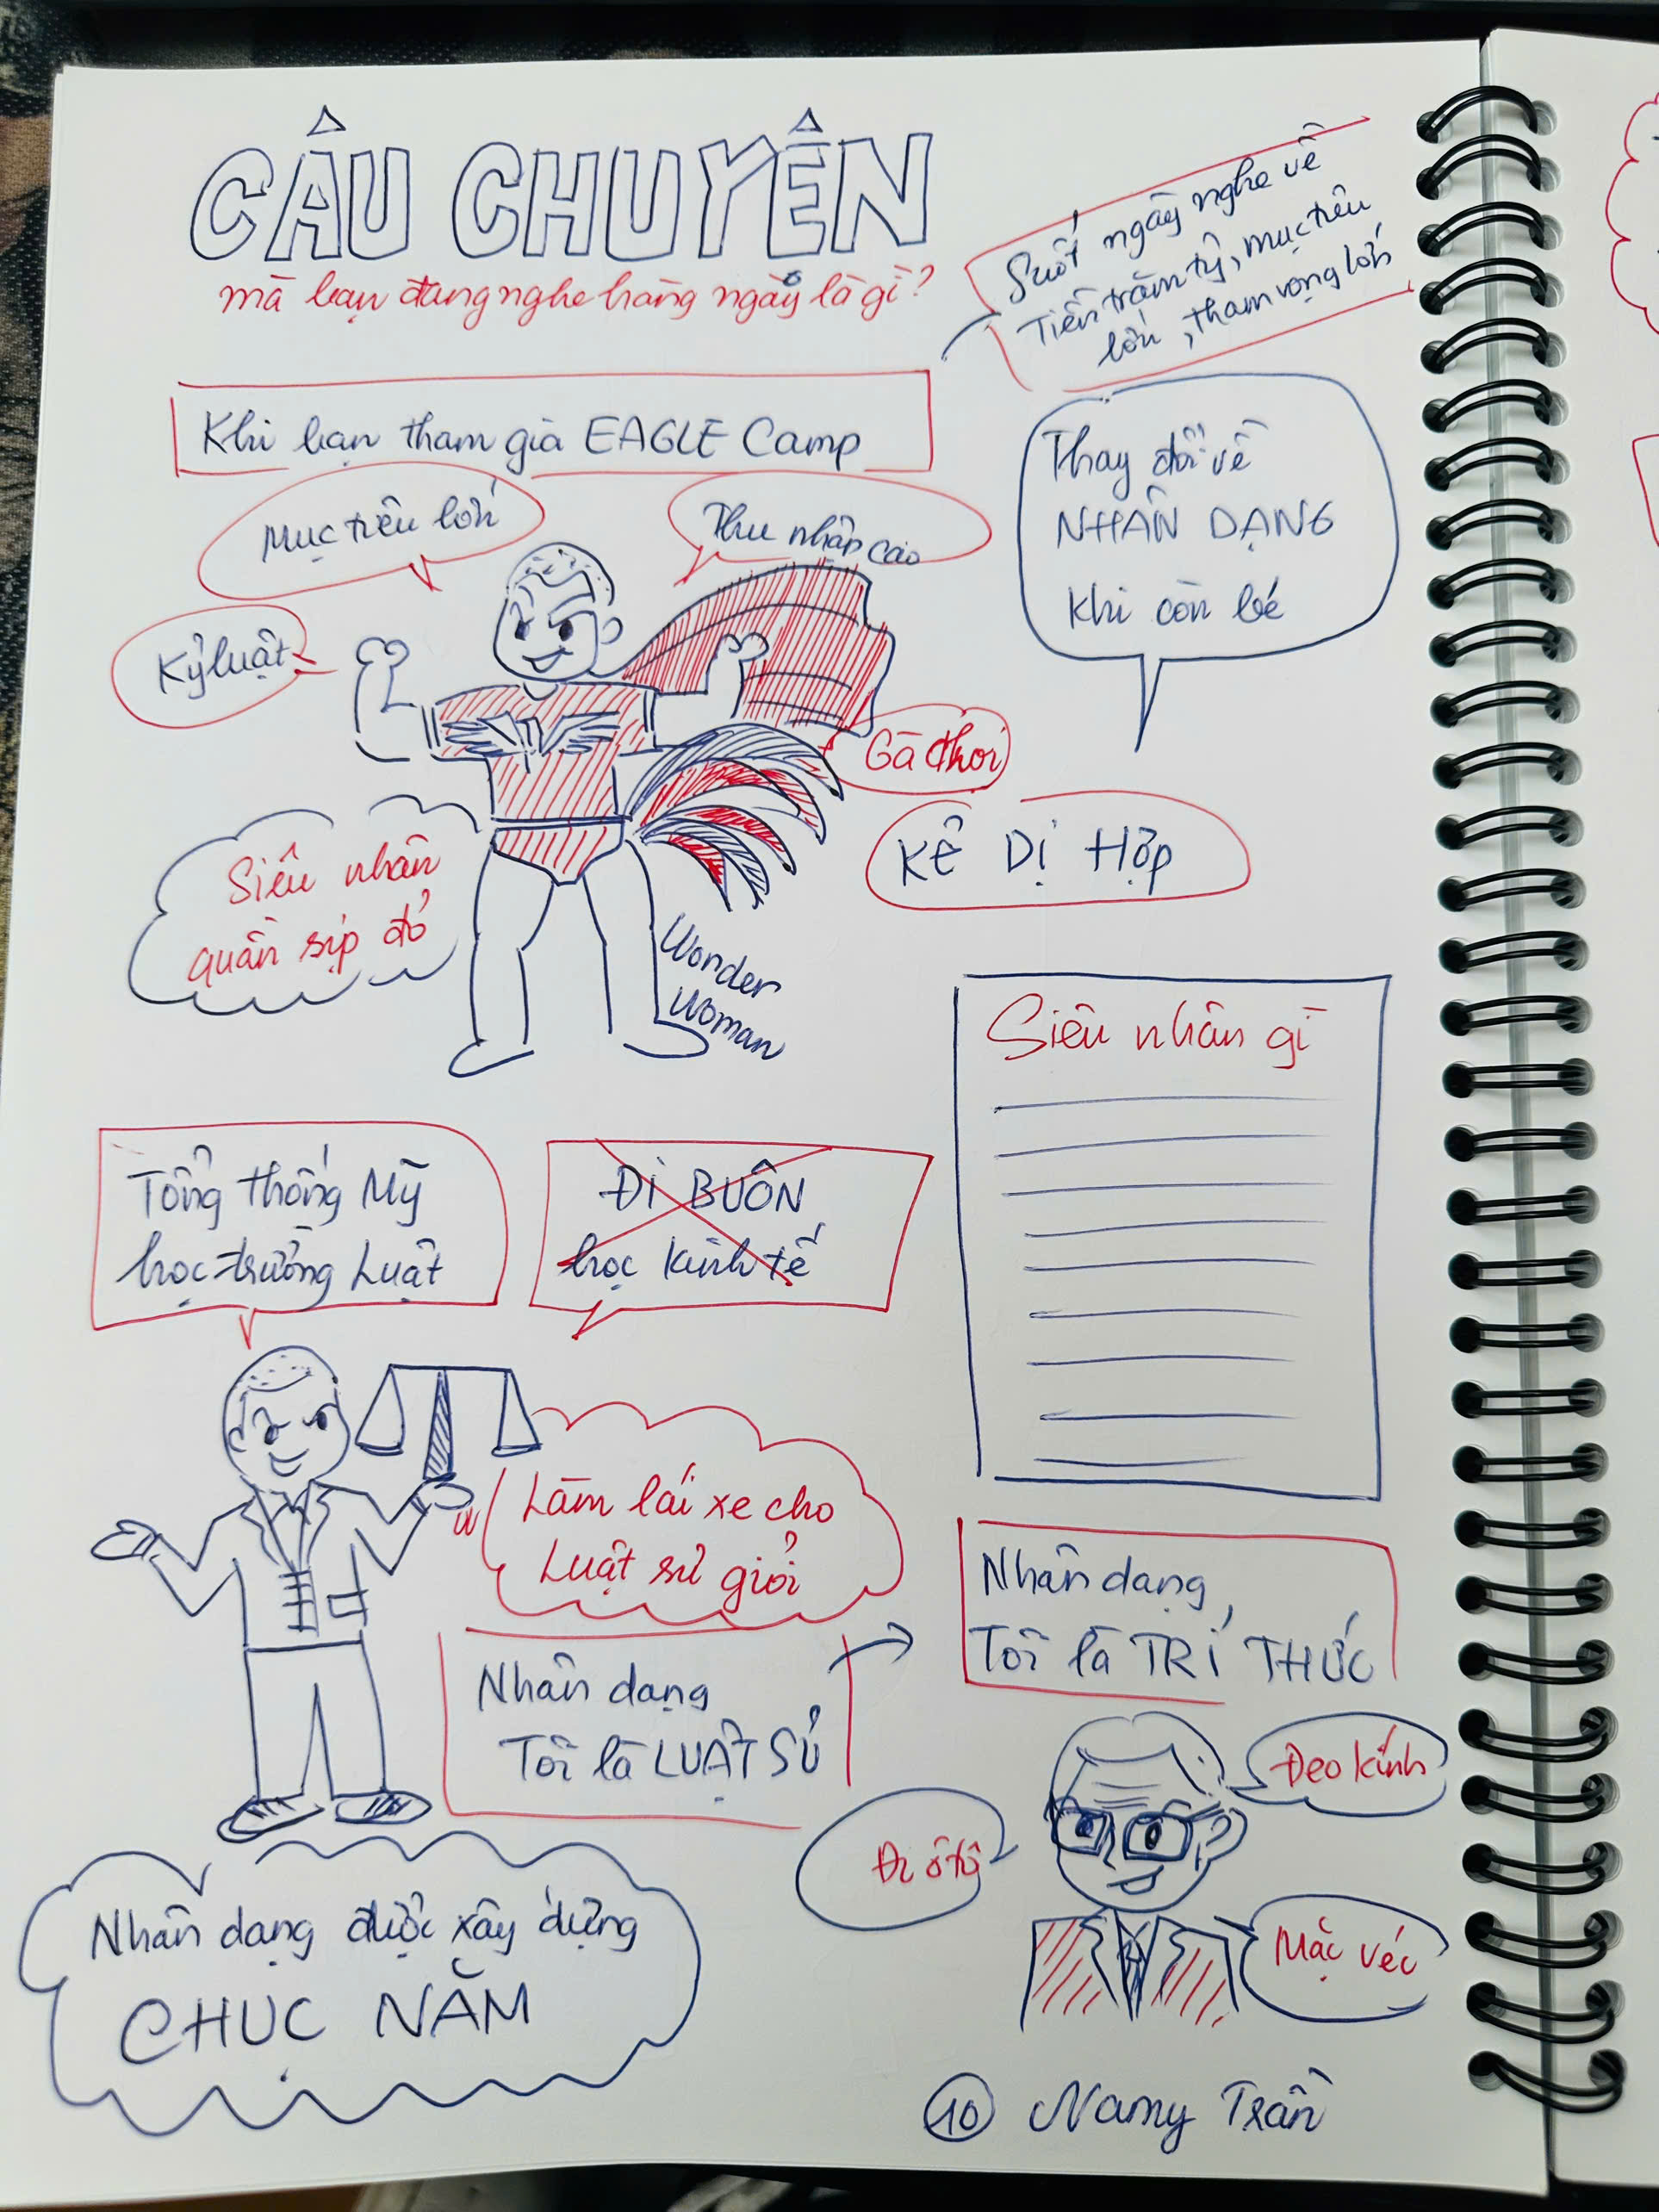 CÂU CHUYÊN
mà bạn đang nghe hàng ngày là gì?
Suốt ngày nghe về
Tiền trăm tỷ, mục tiêu
lớn, tham vọng lớn
Khi bạn tham gia EAGLE Camp
Mục tiêu lớn
Thu nhập cao
Thay đổi về
NHÂN DẠNG
Khi còn bé
Kỷ luật
Gà chơi
KẺ DỊ HỢP
Siêu nhân
quần sịp đỏ
Wonder
Woman
Siêu nhân gì
Tổng thống Mỹ
học trường Luật
ĐI BUÔN
học kinh tế
Làm lái xe cho
Luật sư giỏi
Nhân dạng
Tôi là LUẬT SƯ
Nhân dạng
Tôi là TRÍ THỨC
Đeo kính
Đi ô tô
Mặc véc
Nhân dạng được xây dựng
CHỤC NĂM
10 Namy Trần